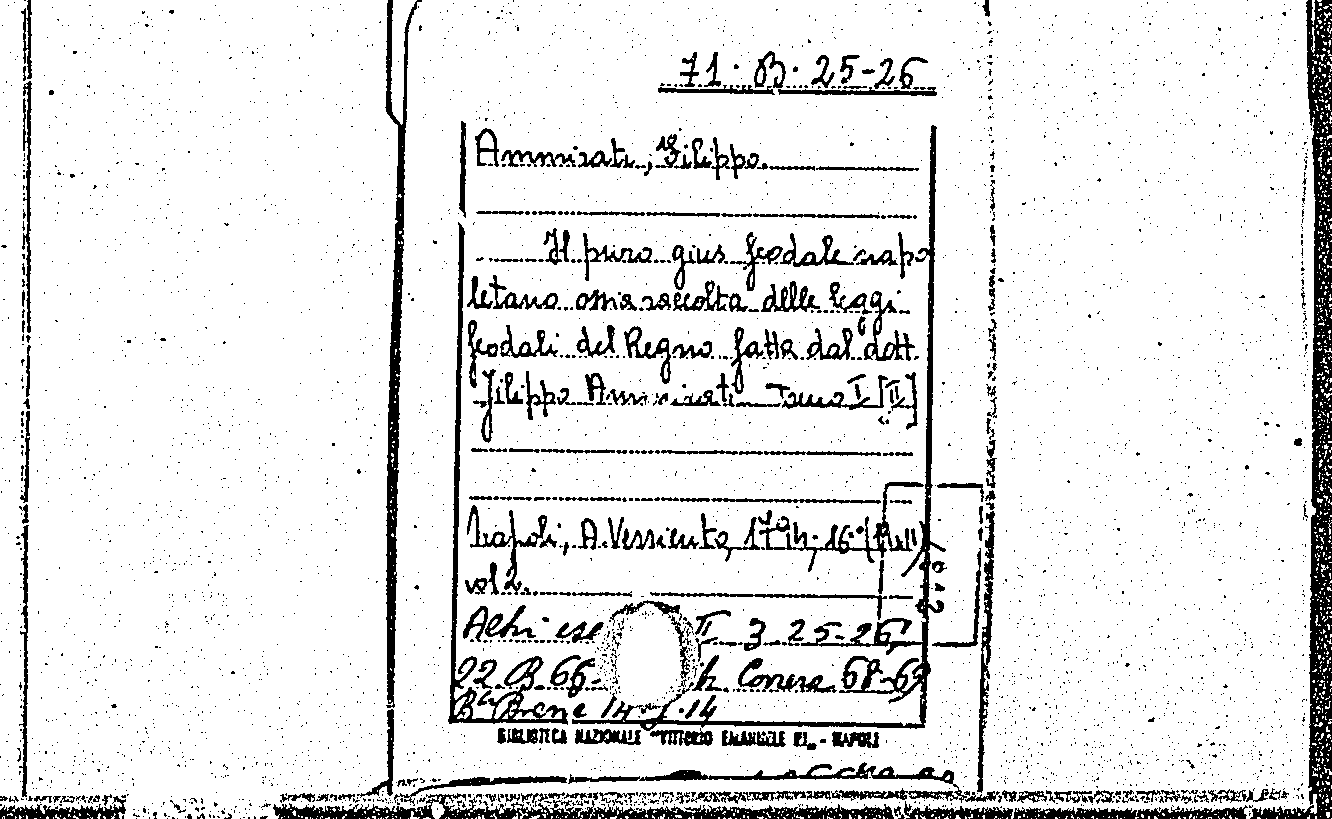 71. B. 25-26
Ammirati, Filippo.
Il puro gius feodale napo
letano o sia raccolta delle leggi
feodali del Regno fatta dal dott.
Filippo Ammirati Tomo I [II]
Napoli, A. Vessicuto, 16° (
vol 2.
Altri ese II 3 25-26
22 B 66- Conera 68-69
14
BIBLIOTECA NAZIONALE "VITTORIO EMANUELE III" - NAPOLI